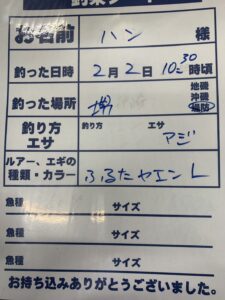 お名前 ハン 様
釣った日時 2月2日 10:30時頃
釣った場所 堤 地磯 沖磯 堤防
釣り方 エサ 釣り方 エサ アジ
ルアー、エギの種類・カラー ふるたヤエン L
魚種 サイズ
魚種 サイズ
魚種 サイズ
お持ち込みありがとうございました。